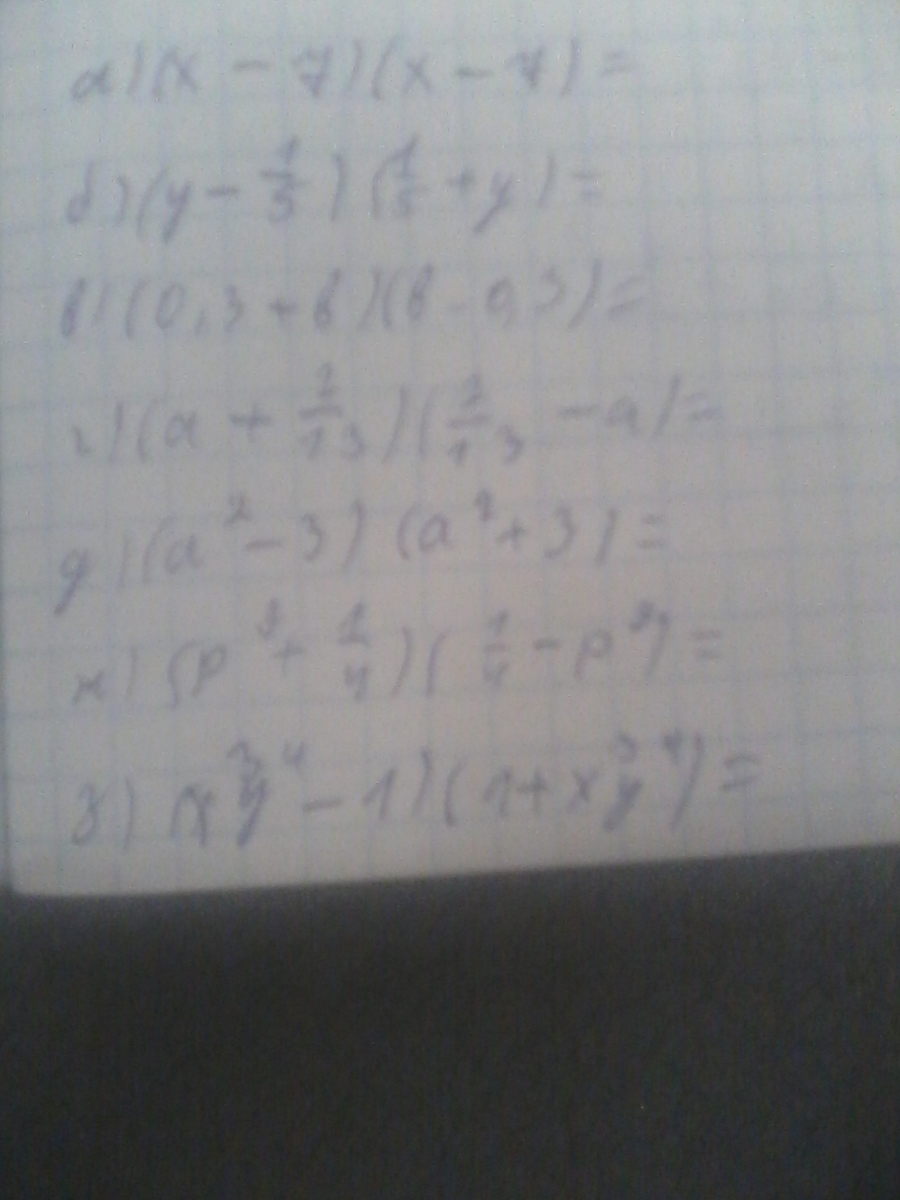 а) (x - 7)(x - 7) =
б) (y - 1/3)(1/3 + y) =
в) (0,3 + b)(b - 0,3) =
г) (a + 1/13)(1/13 - a) =
д) (a² - 3)(a² + 3) =
ж) (p³ + 1/4)(1/4 - p³) =
з) (x³y⁴ - 1)(1 + x³y⁴) =